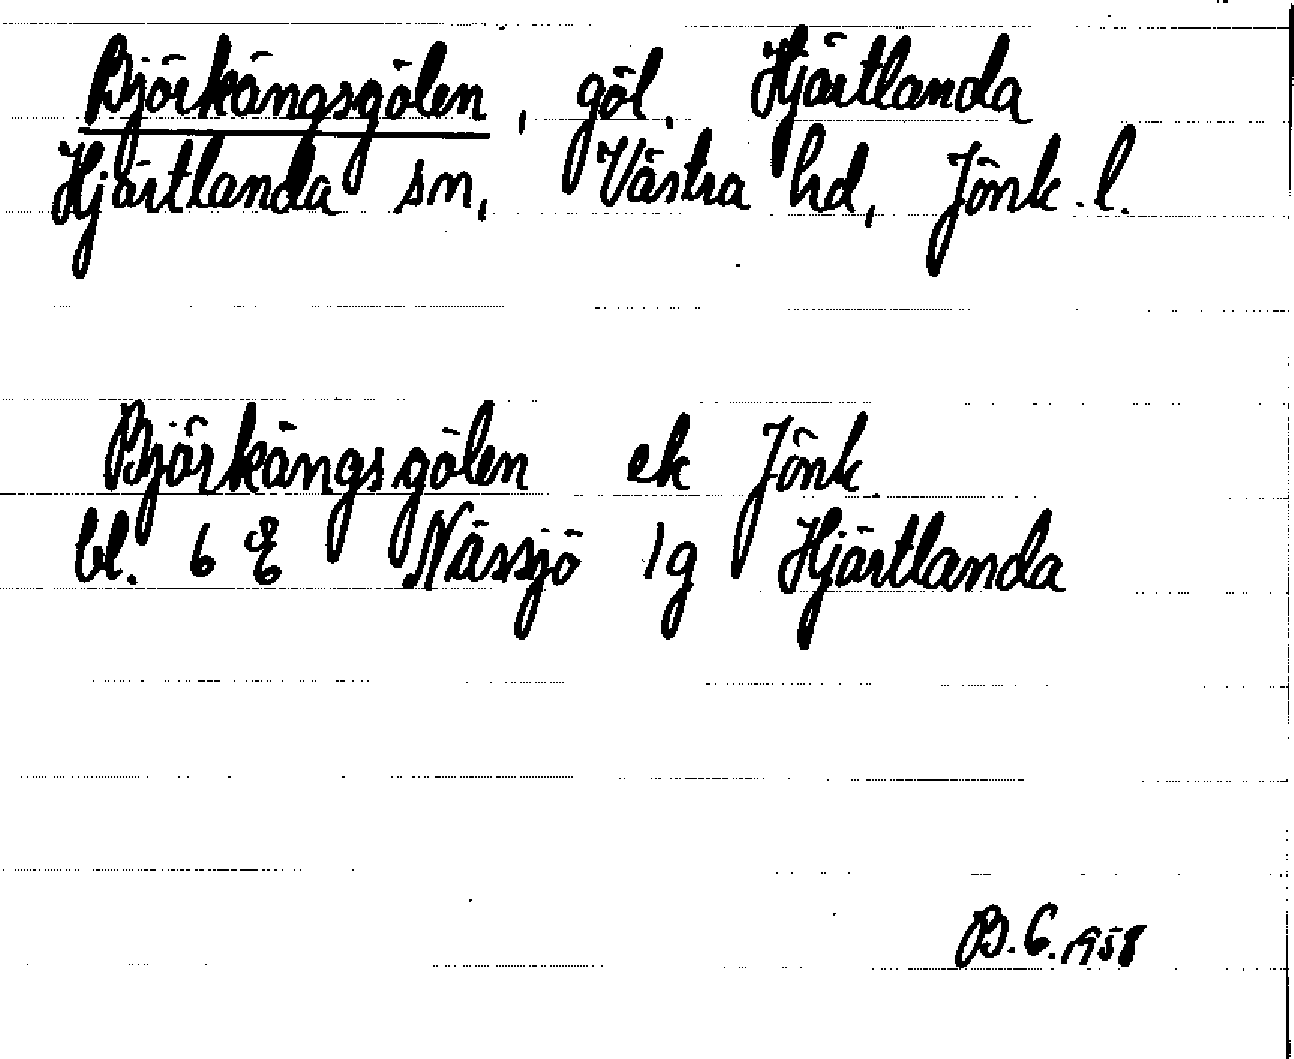 Björkängsgölen, göl, Hjärtlanda
Hjärtlanda sn, Västra hd, Jönk. l.
Björkängsgölen ek Jönk.
bl. 6 E Nässjö 1g Hjärtlanda
B.G. 1958